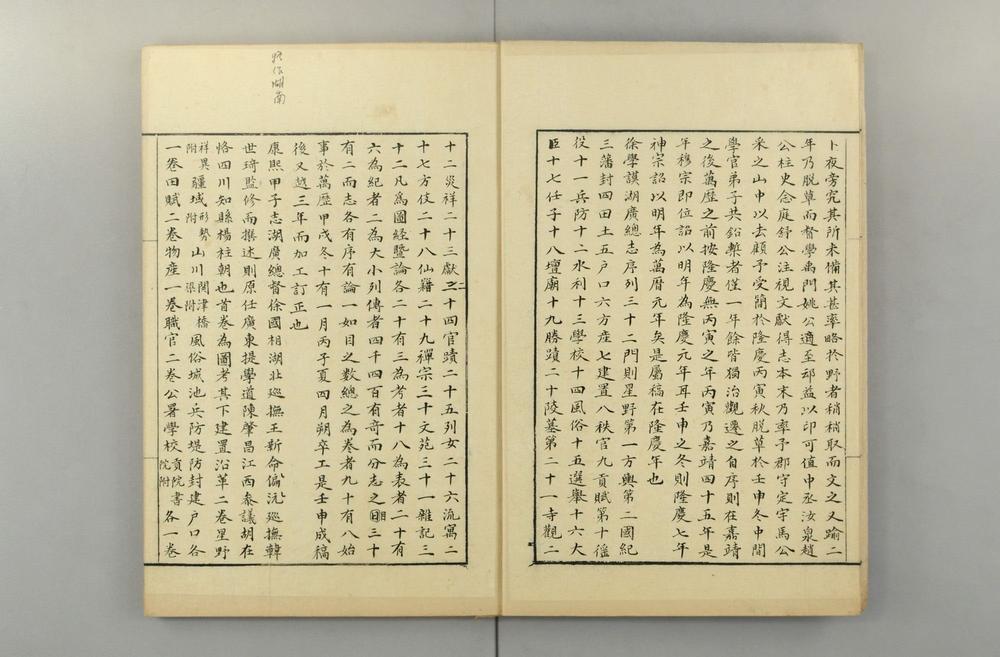 卜夜旁究其所未備其甚率略於野者稍稍取而文之又踰二
年乃脫草而督學禹門姚公適至郢益以印可值中丞汝泉趙
公柱史念庭舒公注視文獻得志本末乃率予郡守定宇馬公
采之山中以去顧予受簡於隆慶丙寅秋脫草於壬申冬中間
學官弟子共鉛槧者僅一年餘皆獨治觀邊之自序則在嘉靖
之後萬歷之前按隆慶無丙寅之年丙寅乃嘉靖四十五年是
年穆宗即位詔以明年為隆慶元年耳壬申之冬則隆慶七年
神宗詔以明年為萬曆元年矣是屬稿在隆慶年也
徐學謨湖廣總志序列三十二門則星野第一方輿第二國紀
三藩封四田土五戶口六方產七建置八秩官九貢賦第十徭
役十一兵防十二水利十三學校十四風俗十五選舉十六大
臣十七任子十八壇廟十九勝蹟二十陵墓第二十一寺觀二
十二災祥二十三獻二十四官蹟二十五列女二十六流寓二
十七方伎二十八仙籬二十九禪宗三十文苑三十一雜記三
十二凡為圖經曁論各二十有三為考者十八為表者二十有
六為紀者二為大小列傳者四千四百有奇而分志之目三十
有二而志各有序有論一如目之數總之為卷者九十有八始
事於萬歷甲戌冬十有一月丙子夏四月朔卒工是壬申成稿
後又越三年而加工訂正也
康熙甲子志湖廣總督徐國相湖北巡撫王新命偏沅巡撫韓
世琦監修而撰述則原任廣東提學道陳肇昌江西泰議胡在
恪四川知縣楊柱朝也首卷為圖考其下建置沿革二卷星野
祥異附疆域形勢附山川關津橋梁附風俗城池兵防堤防封建戶口各
一卷田賦二卷物產一卷職官二卷公署學校貢院書院附各一卷